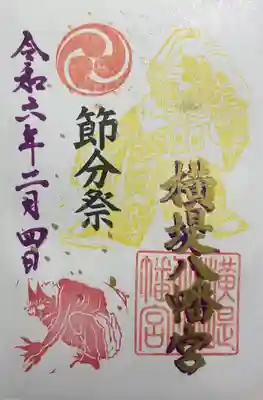 横堤八幡宮
節分祭
令和六年二月四日
横堤
幡宮